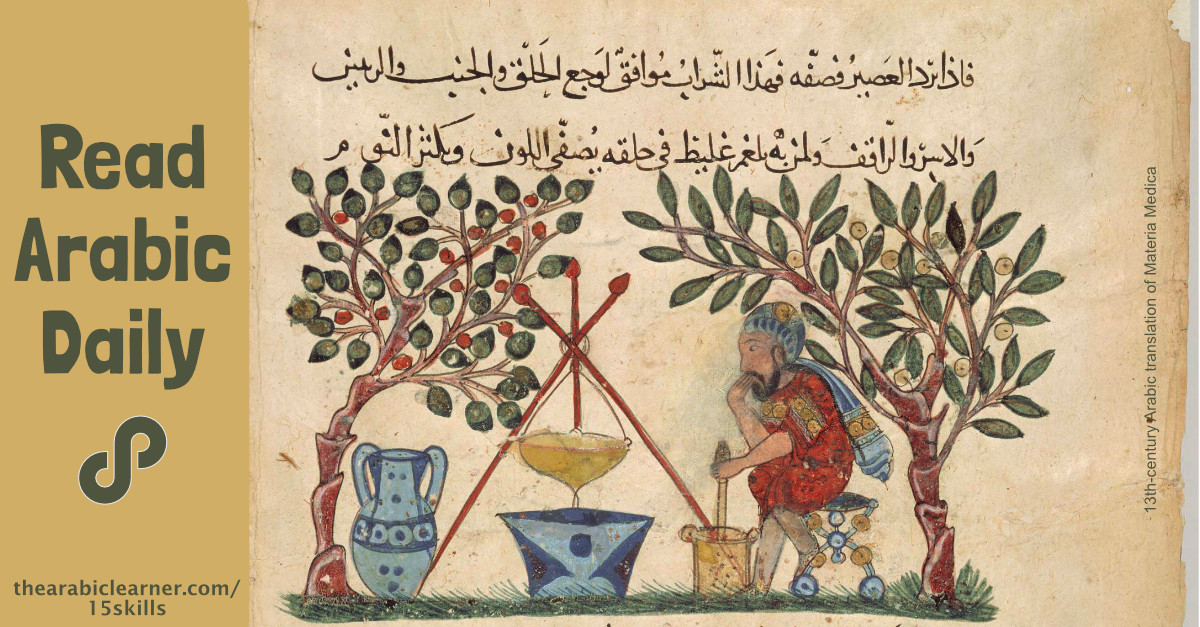 Read
Arabic
Daily
thearabiclearner.com/
15skills
فاذا برد العَصيرُ فصفّه فهَذا الشّرابُ مُوافقٌ لوَجع الحَلْق والجنب
ولمن به بلغم غليظ في حلقه يُصفّي اللون ويكثر النّوم
13th-century Arabic translation of Materia Medica